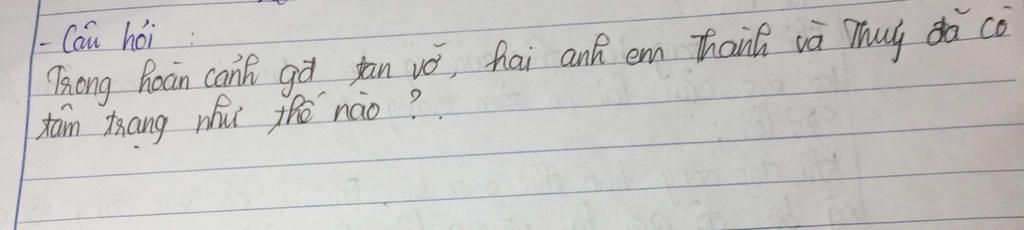 - Câu hỏi :
Trong hoàn cảnh gđ tan vỡ, hai anh em Thành và Thuỷ đã có
tâm trạng như thế nào ?